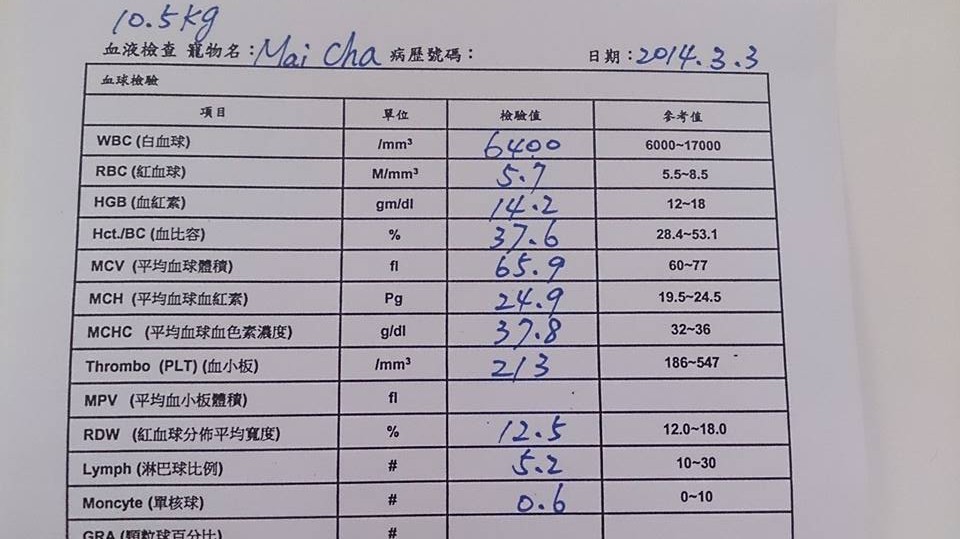 10.5kg
血液檢查 寵物名：Mai Cha 病歷號碼： 日期：2014.3.3
血球檢驗
項目 單位 檢驗值 參考值
WBC (白血球) /mm³ 6400 6000~17000
RBC (紅血球) M/mm³ 5.7 5.5~8.5
HGB (血紅素) gm/dl 14.2 12~18
Hct./BC (血比容) % 37.6 28.4~53.1
MCV (平均血球體積) fl 65.9 60~77
MCH (平均血球血紅素) Pg 24.9 19.5~24.5
MCHC (平均血球血色素濃度) g/dl 37.8 32~36
Thrombo (PLT) (血小板) /mm³ 213 186~547
MPV (平均血小板體積) fl
RDW (紅血球分佈平均寬度) % 12.5 12.0~18.0
Lymph (淋巴球比例) # 5.2 10~30
Moncyte (單核球) # 0.6 0~10
GRA (顆粒球百分比) #